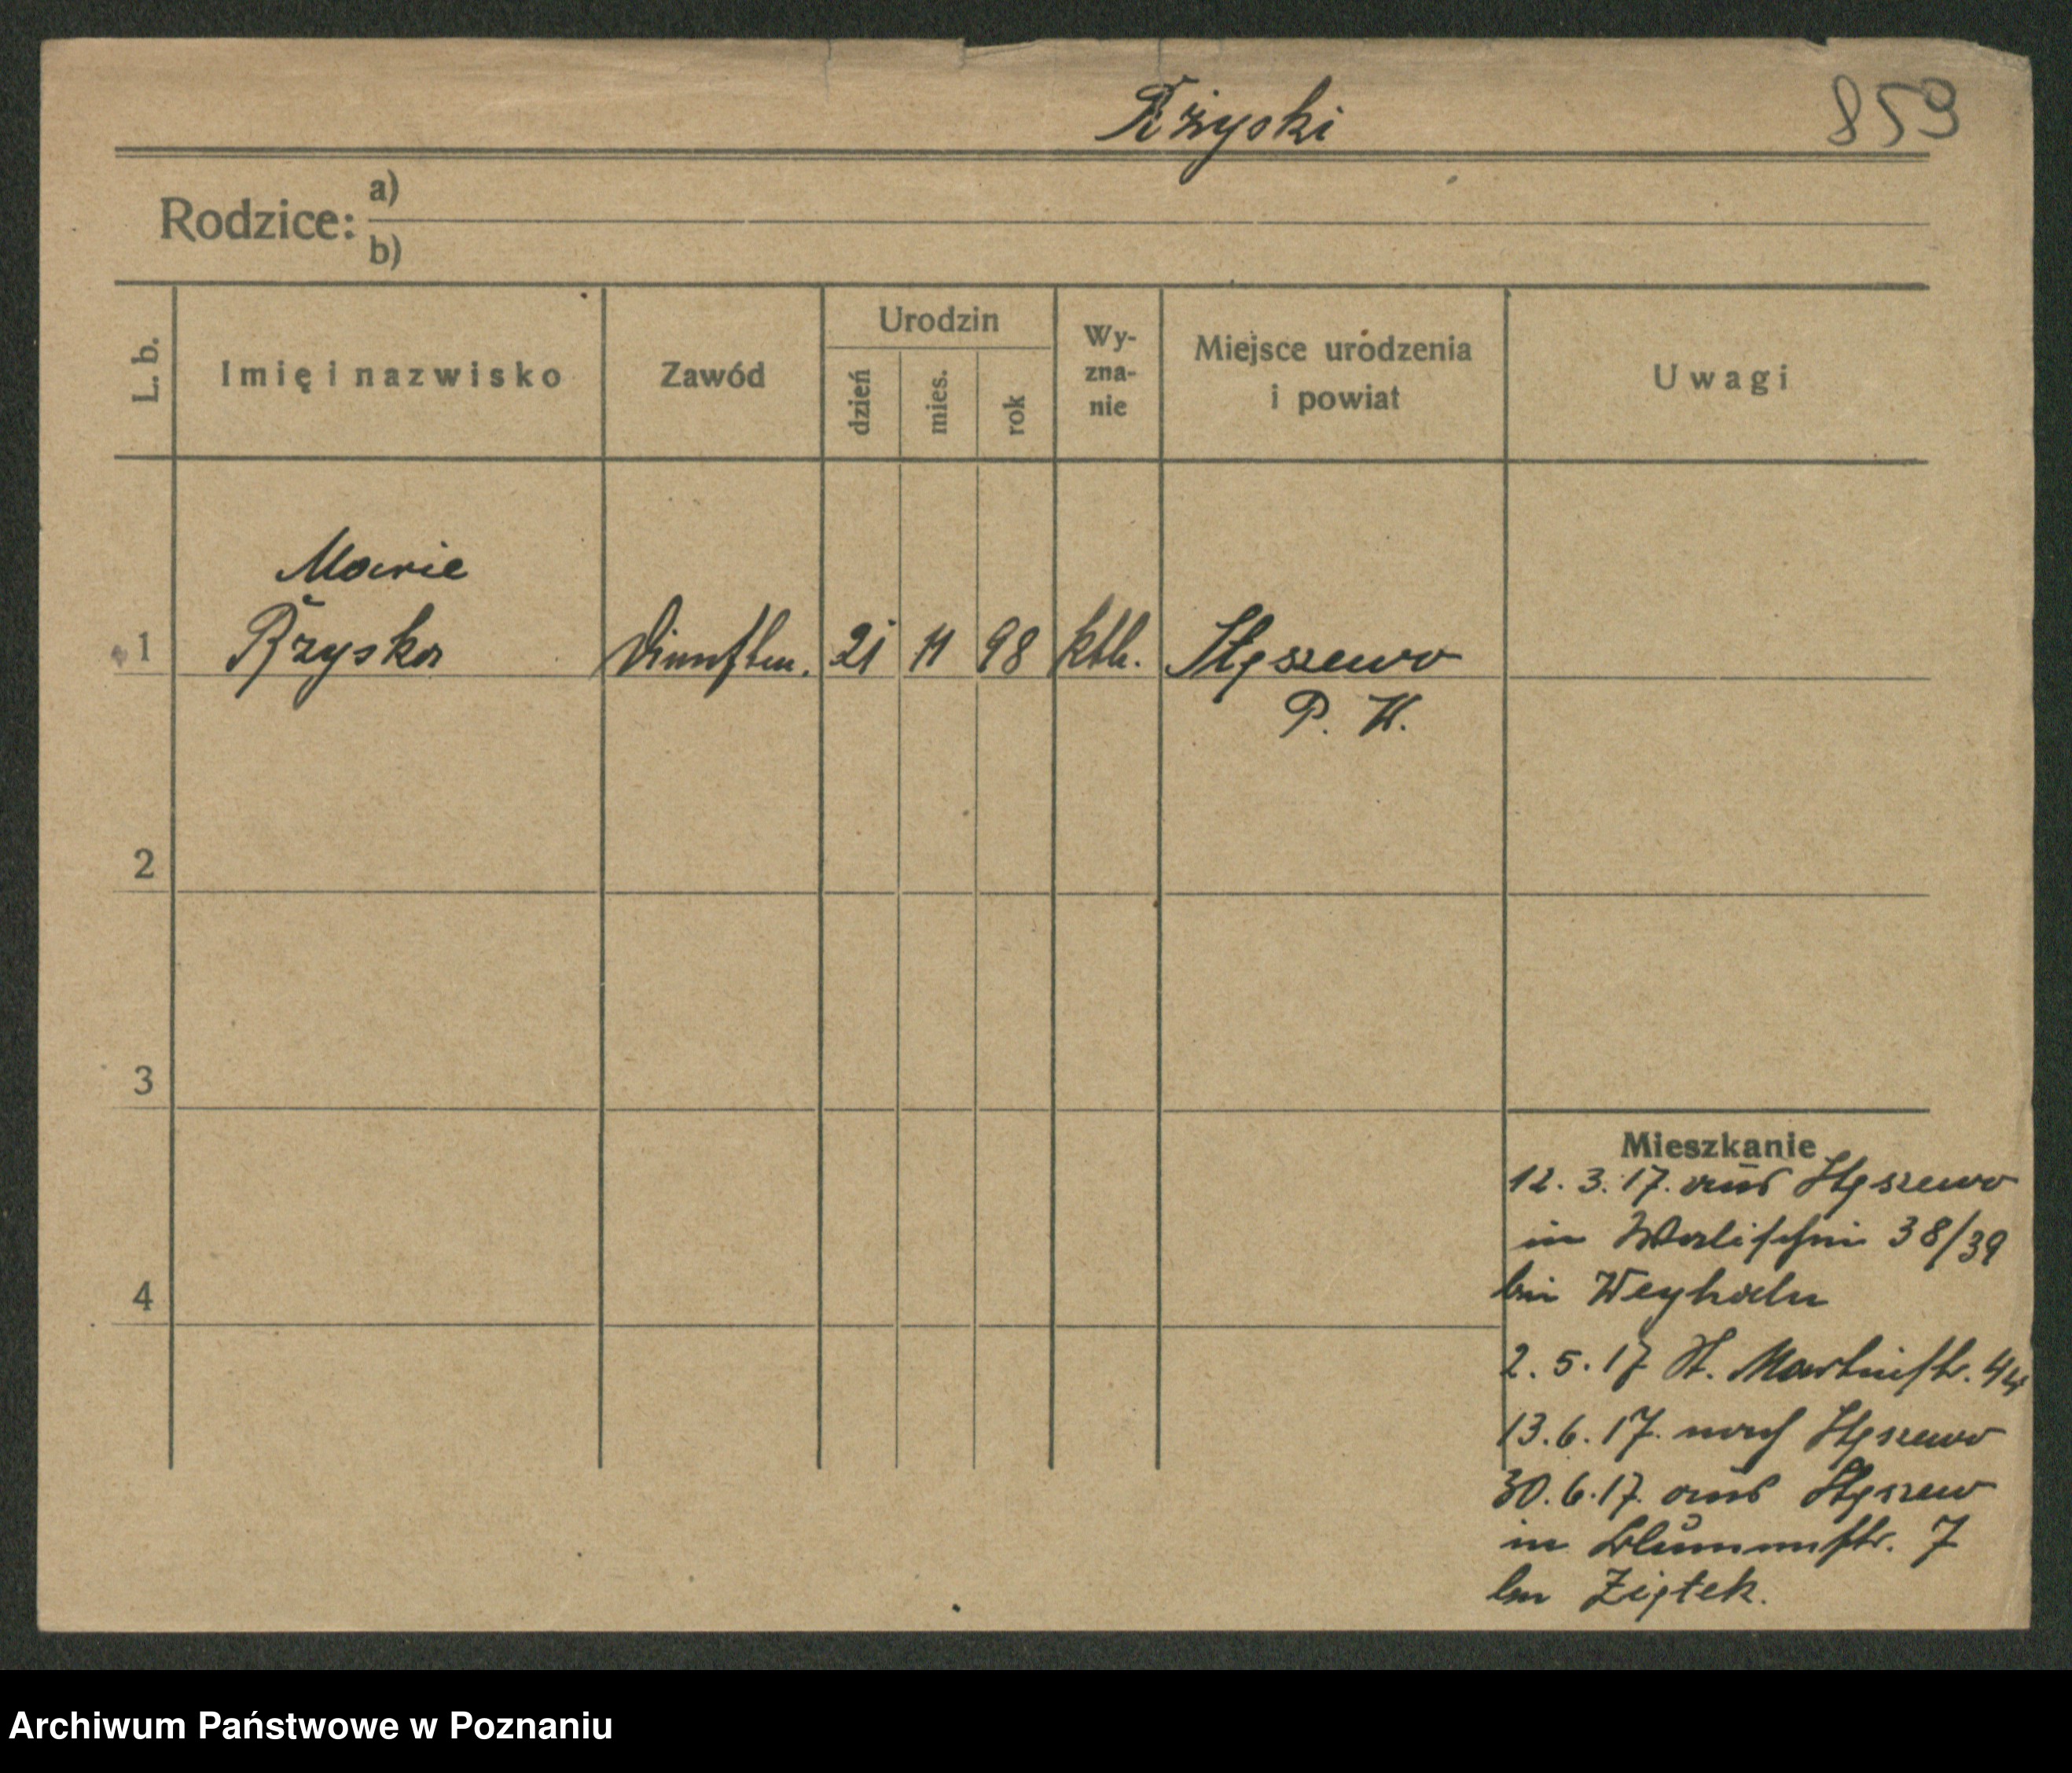 Rżyski
859
Rodzice: a)
b)
L. b.
Imię i nazwisko
Zawód
Urodzin
dzień
mies.
rok
Wy-
zna-
nie
Miejsce urodzenia
i powiat
Uwagi
Marie
1 Rzyska Dienstm. 21 11 98 kth. Stęszewo
P. W.
2
3
4
Mieszkanie
12. 3. 17. aus Stęszewo
in Wallischei 38/39
bei
2. 5. 17 St. Martinstr. 44
13. 6. 17. nach Stęszewo
30. 6. 17. aus Stęszew
in Blumenstr. 7
bei Ziętek.
Archiwum Państwowe w Poznaniu